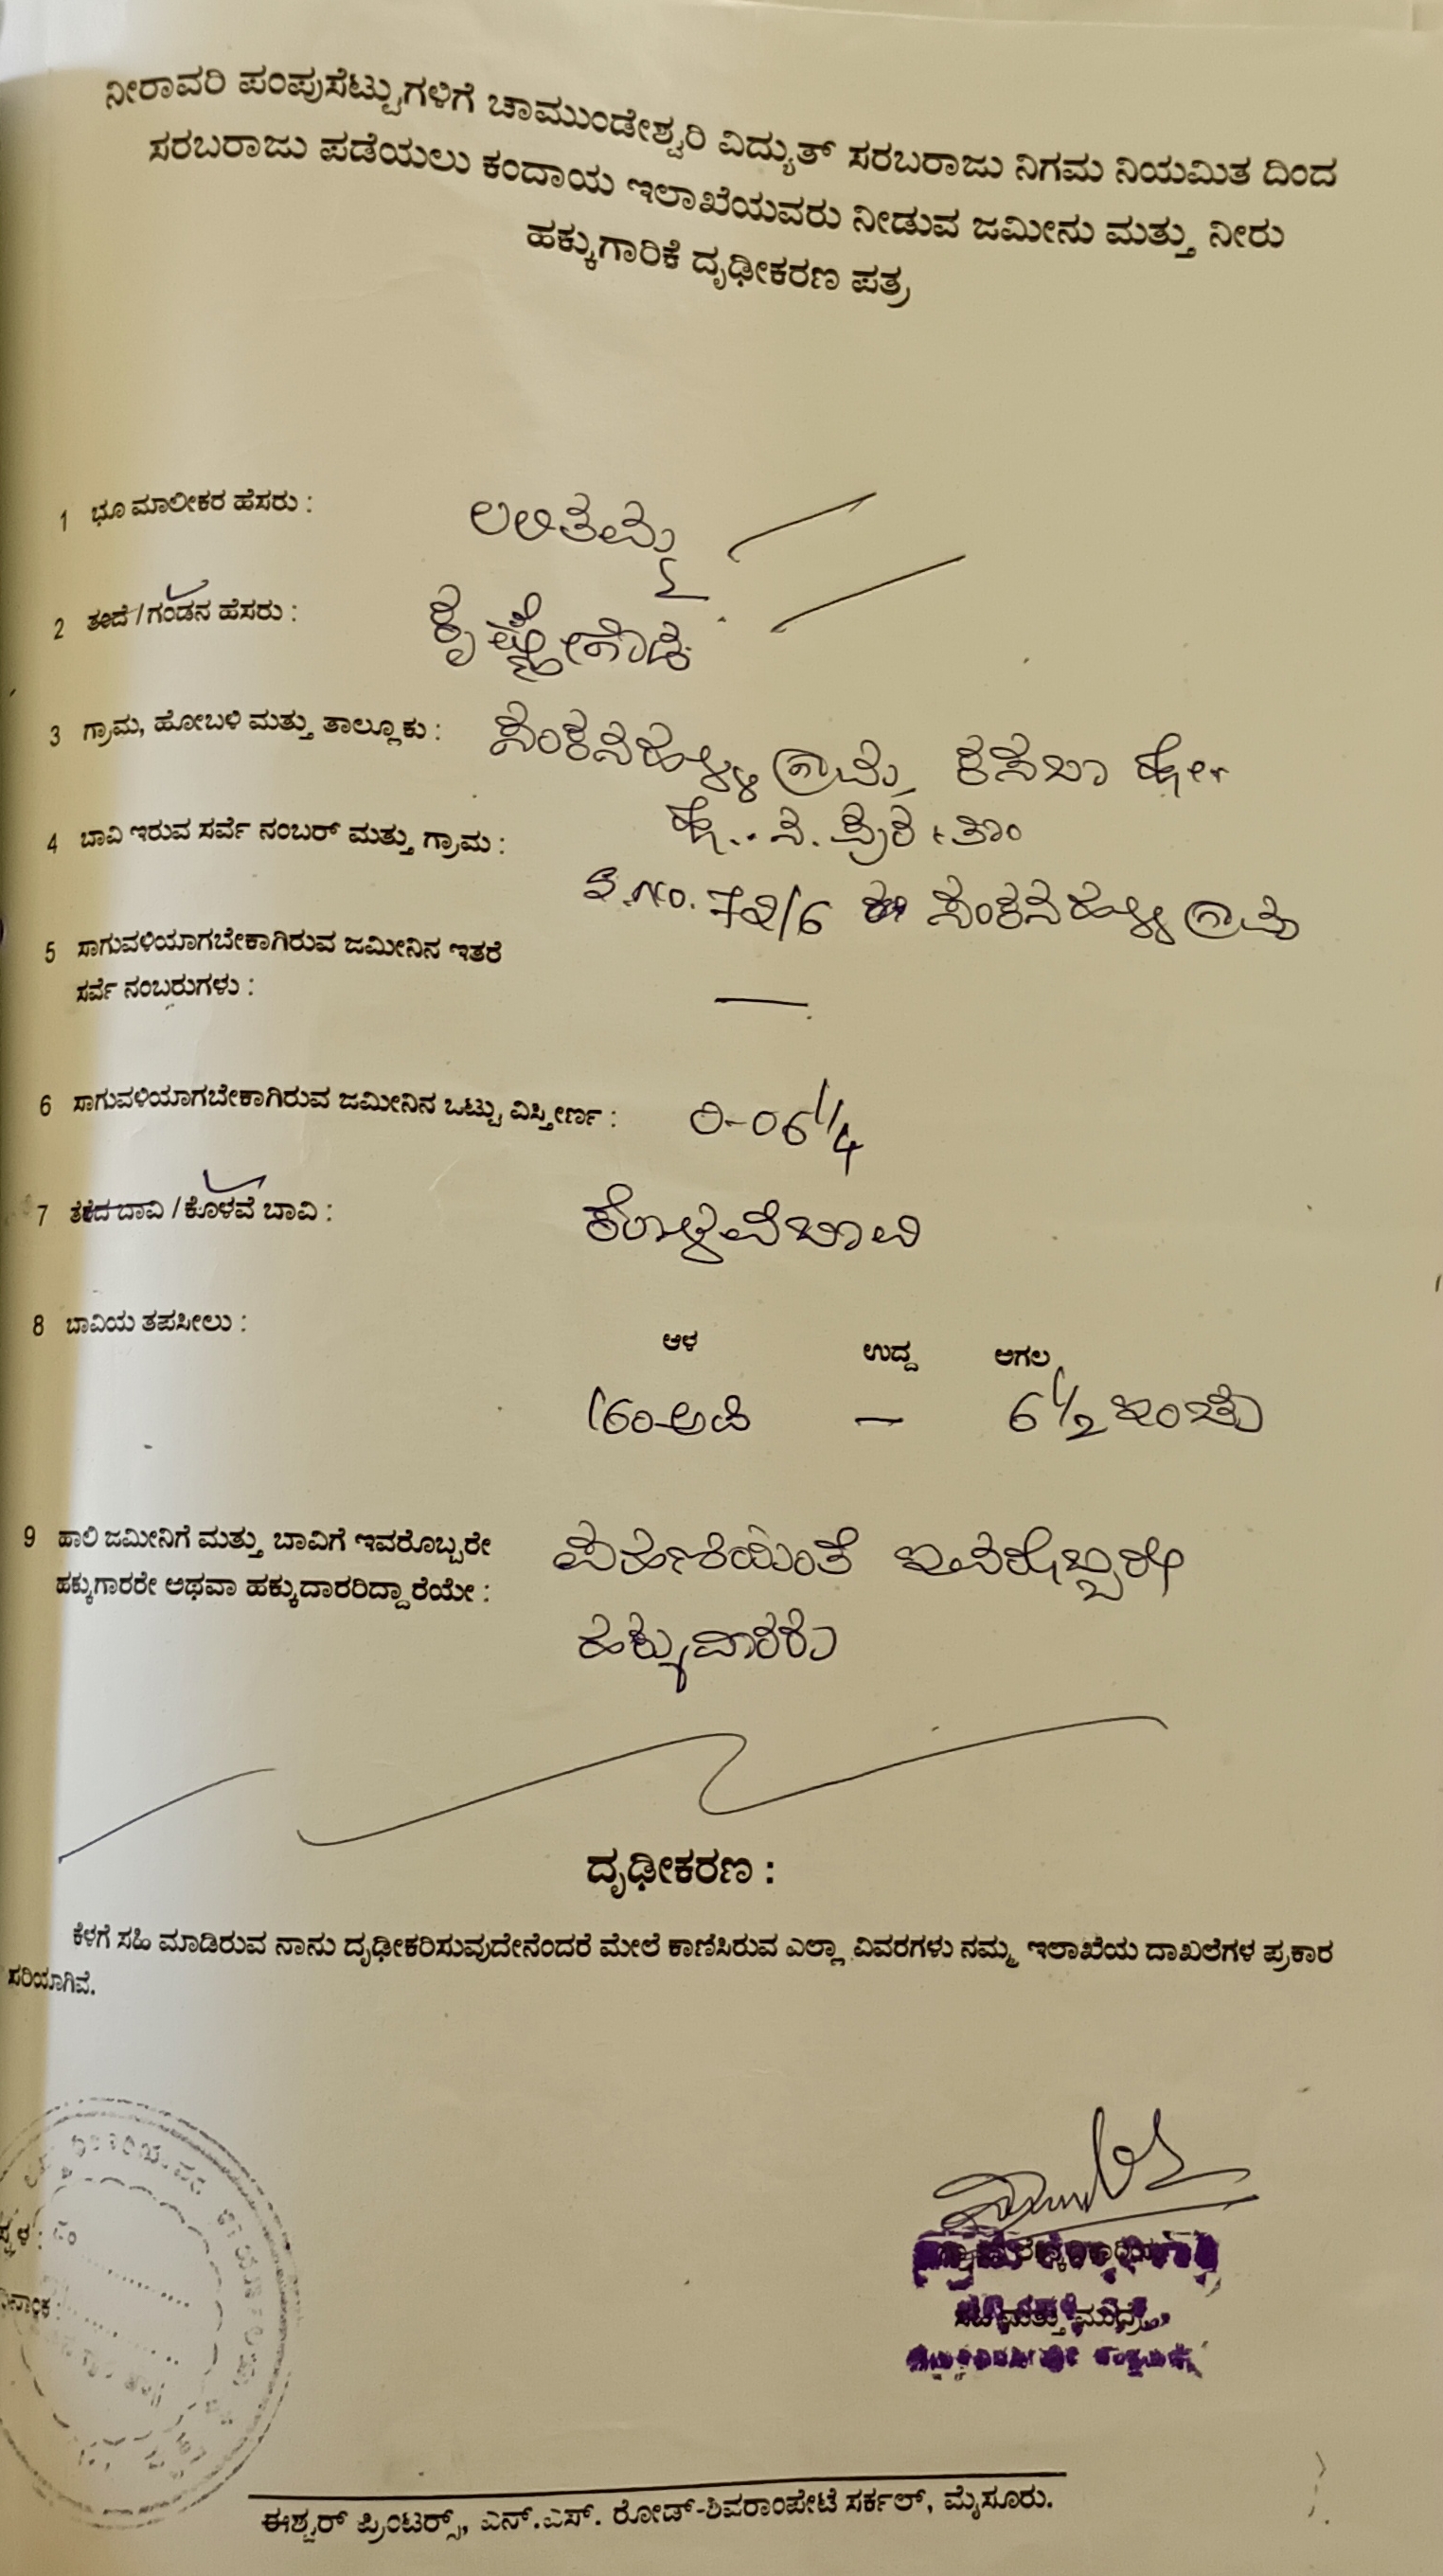 ನೀರಾವರಿ ಪಂಪುಸೆಟ್ಟುಗಳಿಗೆ ಚಾಮುಂಡೇಶ್ವರಿ ವಿದ್ಯುತ್ ಸರಬರಾಜು ನಿಗಮ ನಿಯಮಿತ ದಿಂದ
ಸರಬರಾಜು ಪಡೆಯಲು ಕಂದಾಯ ಇಲಾಖೆಯವರು ನೀಡುವ ಜಮೀನು ಮತ್ತು ನೀರು
ಹಕ್ಕುಗಾರಿಕೆ ದೃಢೀಕರಣ ಪತ್ರ
1 ಭೂ ಮಾಲೀಕರ ಹೆಸರು : ಲಲಿತಮ್ಮ
2 ತಂದೆ / ಗಂಡನ ಹೆಸರು : ಕೃಷ್ಣೇಗೌಡ
3 ಗ್ರಾಮ, ಹೋಬಳಿ ಮತ್ತು ತಾಲ್ಲೂಕು : ಸಂಕನಹಳ್ಳಿ ಗ್ರಾಮ, ಕಸಬಾ
ಹೊ.. ನ. ಪುರ ತಾಂ
4 ಬಾವಿ ಇರುವ ಸರ್ವೆ ನಂಬರ್ ಮತ್ತು ಗ್ರಾಮ :
S.No. 72/6 ಸಂಕನಹಳ್ಳಿ ಗ್ರಾಮ
5 ಸಾಗುವಳಿಯಾಗಬೇಕಾಗಿರುವ ಜಮೀನಿನ ಇತರೆ
ಸರ್ವೆ ನಂಬರುಗಳು : —
6 ಸಾಗುವಳಿಯಾಗಬೇಕಾಗಿರುವ ಜಮೀನಿನ ಒಟ್ಟು ವಿಸ್ತೀರ್ಣ : 0-06 1/4
7 ತೆಕೆದ ಬಾವಿ / ಕೊಳವೆ ಬಾವಿ : ಕೊಳವೆಬಾವಿ
8 ಬಾವಿಯ ತಪಸೀಲು :
ಆಳ ಉದ್ದ ಅಗಲ
160 ಅಡಿ — 6 1/2 ಇಂಚು
9 ಹಾಲಿ ಜಮೀನಿಗೆ ಮತ್ತು ಬಾವಿಗೆ ಇವರೊಬ್ಬರೇ ಪಹಣಿಯಂತೆ ಇವರೊಬ್ಬರೇ
ಹಕ್ಕುಗಾರರೇ ಅಥವಾ ಹಕ್ಕುದಾರರಿದ್ದಾರೆಯೇ :
ಹಕ್ಕುದಾರರು
ದೃಢೀಕರಣ :
ಕೆಳಗೆ ಸಹಿ ಮಾಡಿರುವ ನಾನು ದೃಢೀಕರಿಸುವುದೇನೆಂದರೆ ಮೇಲೆ ಕಾಣಿಸಿರುವ ಎಲ್ಲಾ ವಿವರಗಳು ನಮ್ಮ ಇಲಾಖೆಯ ದಾಖಲೆಗಳ ಪ್ರಕಾರ
ಸರಿಯಾಗಿವೆ.
ಸಹಿ ಮತ್ತು ಮುದ್ರೆ
ಈಶ್ವರ್ ಪ್ರಿಂಟರ್ಸ್, ಎನ್.ಎಸ್. ರೋಡ್-ಶಿವರಾಂಪೇಟೆ ಸರ್ಕಲ್, ಮೈಸೂರು.